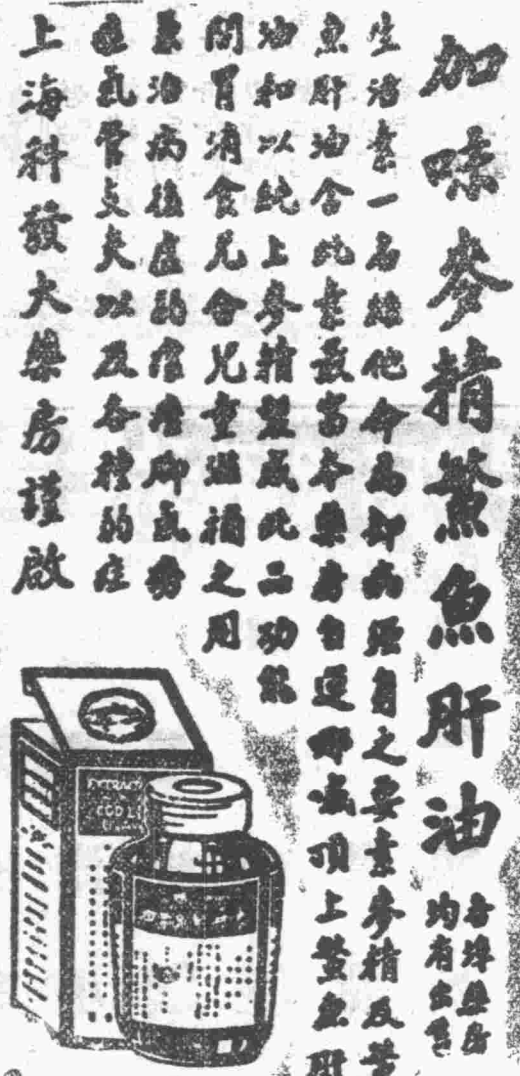 加味麥精鰵魚肝油
各埠藥房
均有出售
生活素一名維他命為却病强身之要素麥精及鰵
魚肝油含此素最富本藥房自運哪威頂上鰵魚肝
油和以純上麥精製成此品功能
開胃消食尤合兒童滋補之用
兼治病後虛弱瘰癧脚氣勞
症氣管支炎以及各種的症
上海科發大藥房謹啟
EXTRACT
COD L